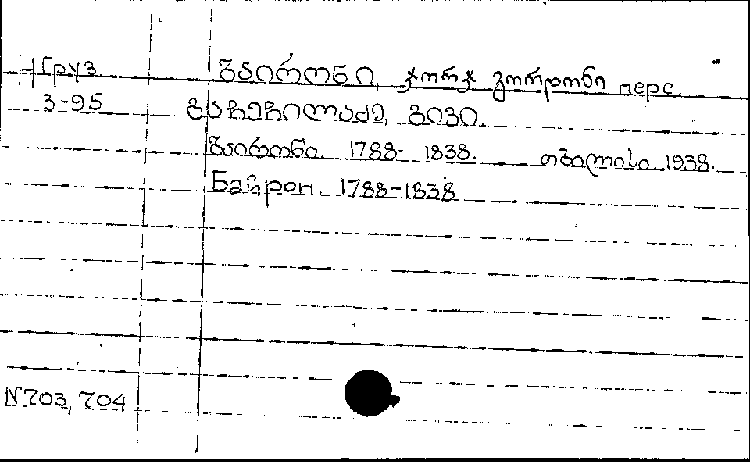 Груз
3-95
ბაირონი, ჯორჯ გორდონი перс
გაჩეჩილაძე, გივი.
ბაირონი. 1788-1838. თბილისი 1938.
Байрон. 1788-1838
N 703, 704